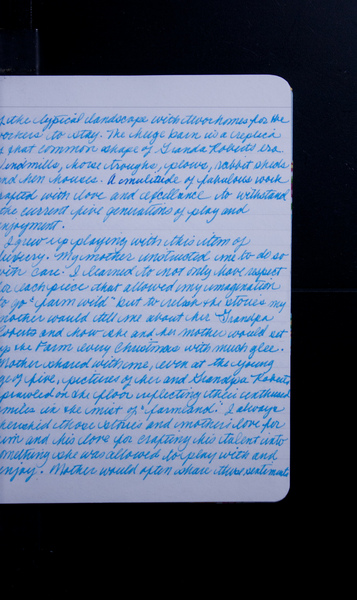 the typical landscape with two homes for the
workers to stay. The huge barn is a replica
that common shape of Granda Roberts era
windmills, horse troughs, plows, rabbit sheds
and hen houses. A multitude of fabulous work
crafted with love and excellance to withstand
the current five generations of play and
enjoyment.
I grew up playing with this item of
My mother instructed me to do so
with "care". I learned to not only have respect
for each piece that allowed my imagination
to go "farm wild" but to relish the stories my
mother would tell me about her Grandpa
Roberts and how she and her mother would set
up the Farm every Christmas with much glee.
Mother shared with me, even at the young
age of five, pictures of her and Grandpa Roberts
sprawled on the floor reflecting their enthused
smiles in the mist of "farmland". I always
cherished those stories and mother's love for
him and his love for crafting his talent into
something she was allowed to play with and
enjoy. Mother would often share these sentiments